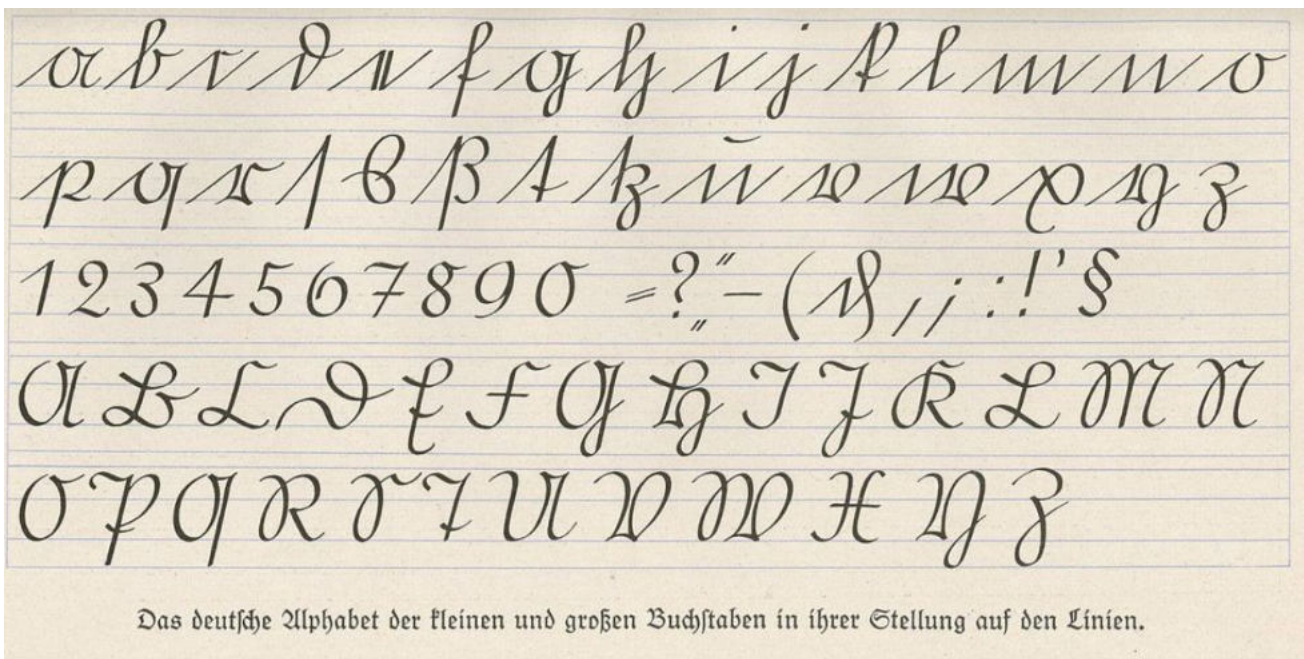 a b c d e f g h i j k l m n o
p q r ſ s ß t tz u v w x y z
1 2 3 4 5 6 7 8 9 0 = ? „ “ – ( ) , ; : ! ' §
A B C D E F G H I J K L M N
O P Q R S T U V W X Y Z
Das deutſche Alphabet der kleinen und großen Buchſtaben in ihrer Stellung auf den Linien.